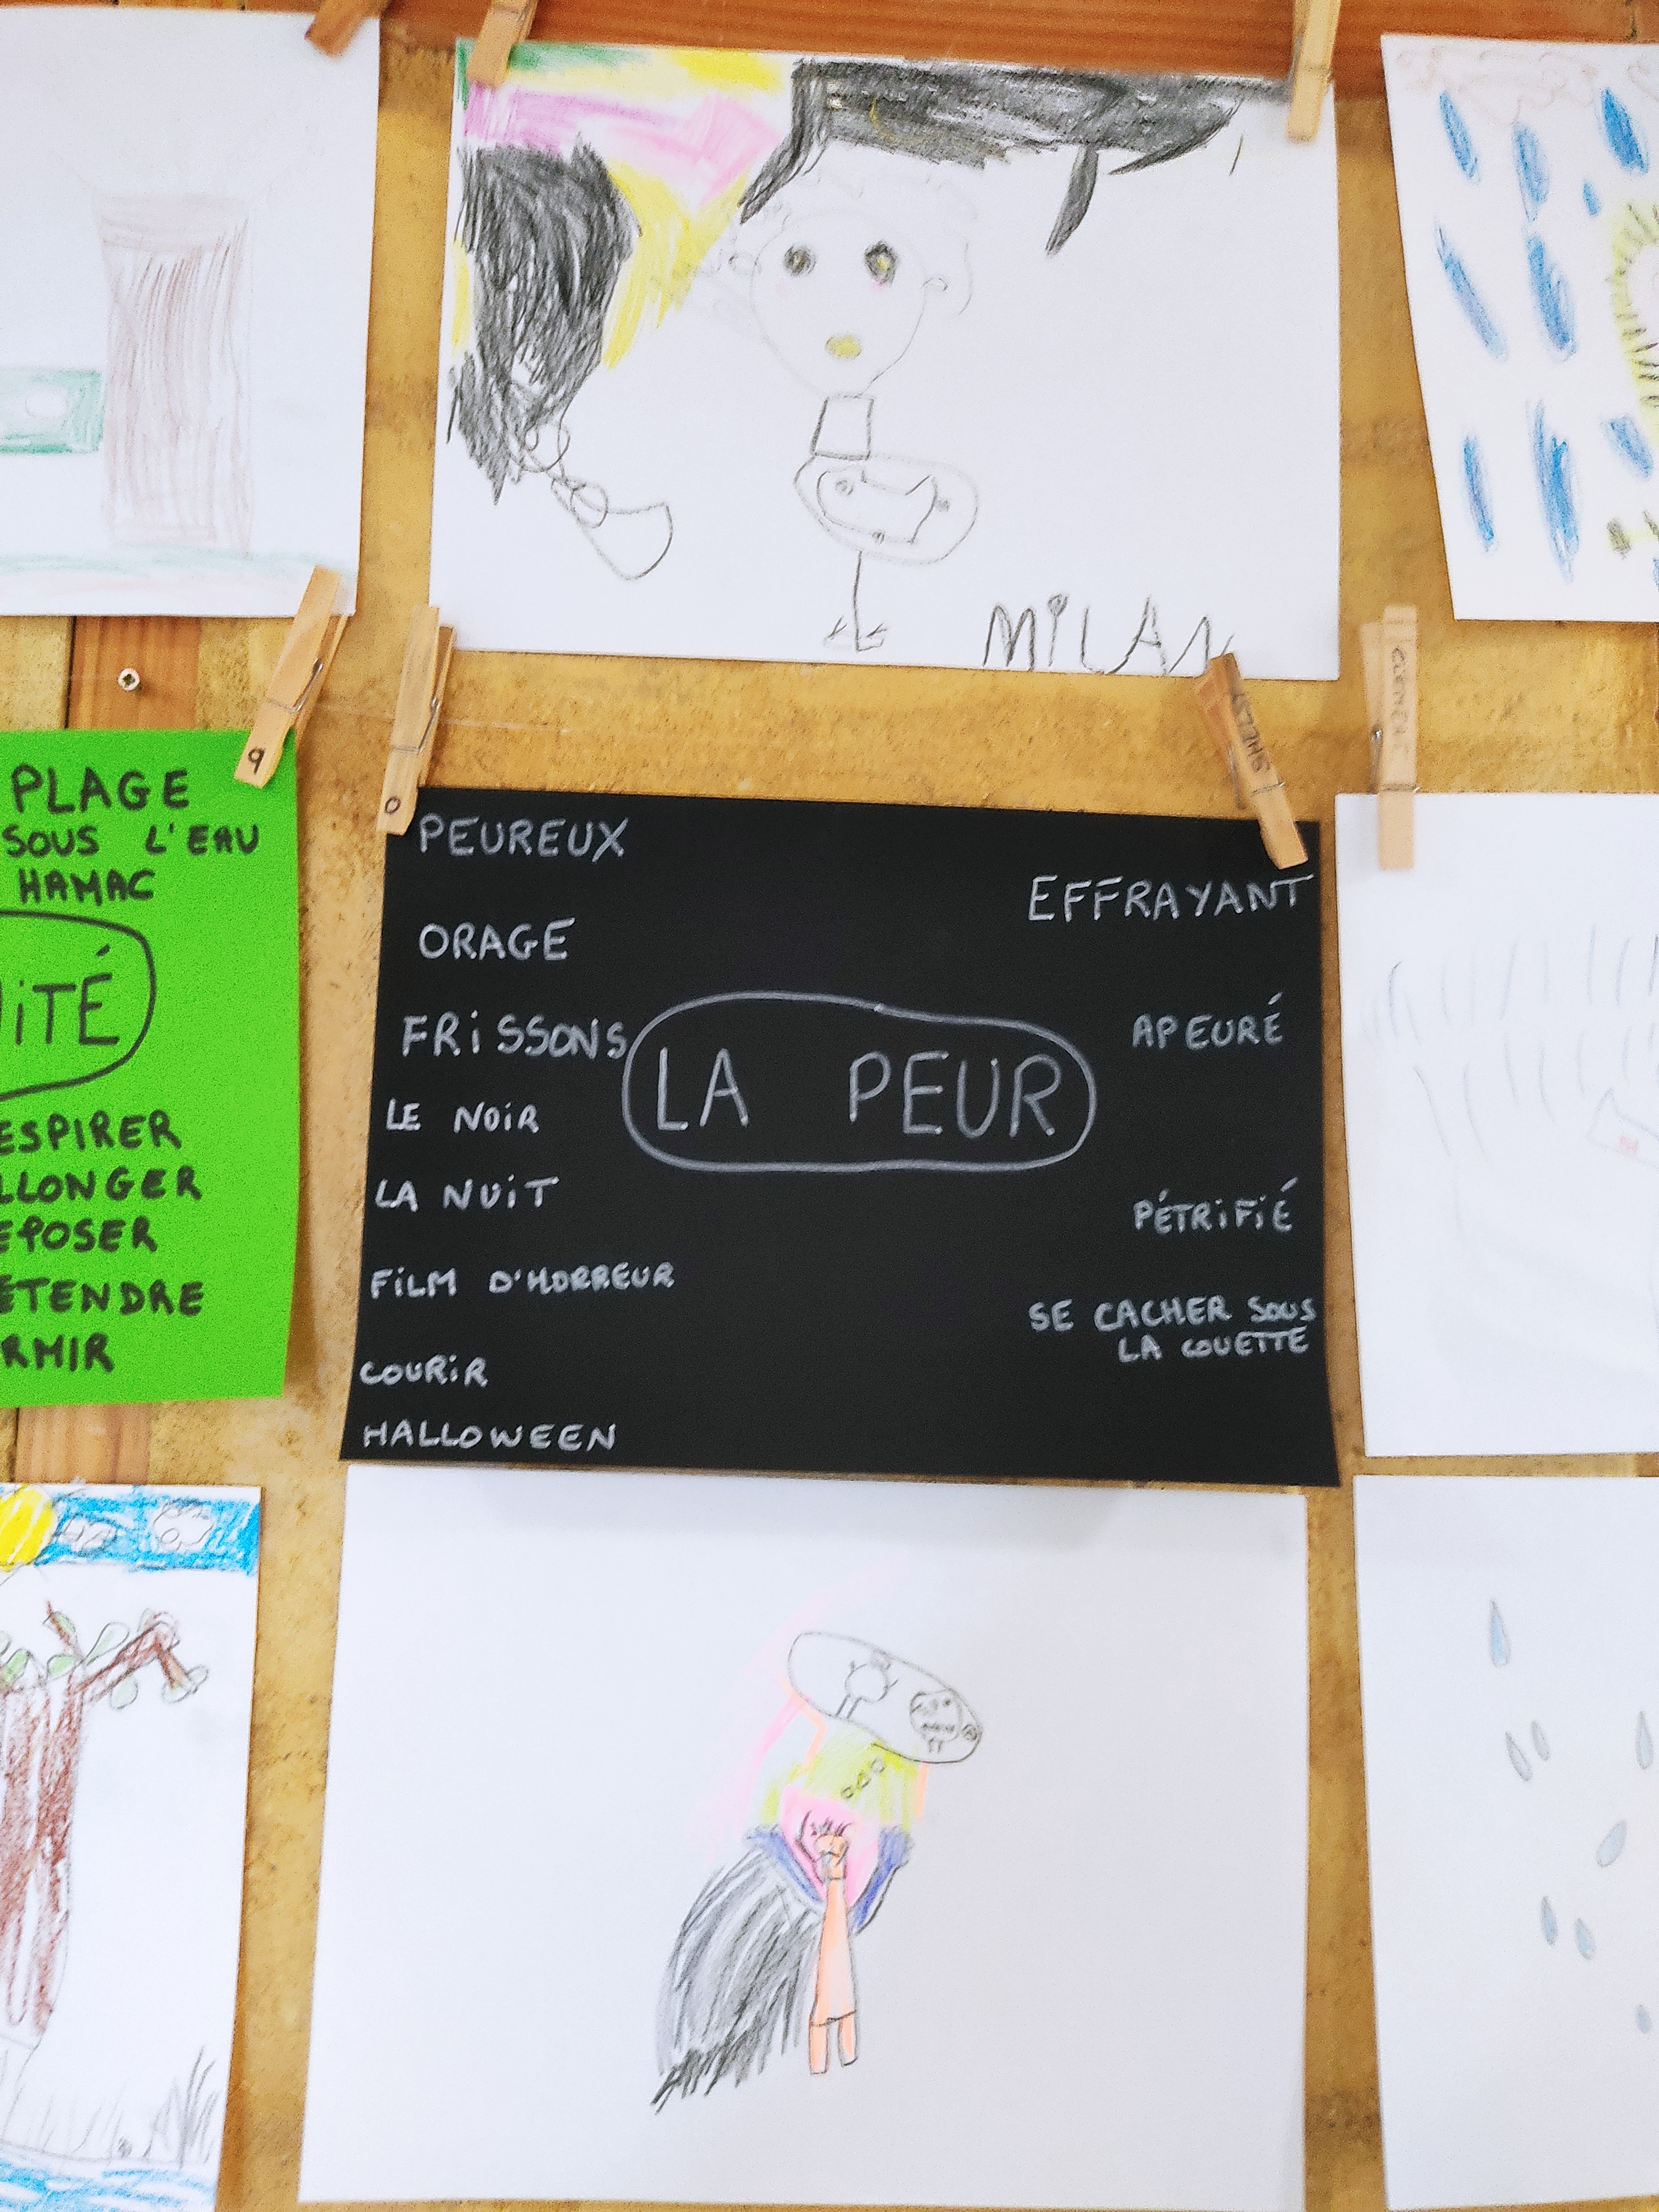 MiLAN
PLAGE
SOUS L'EAU
HAMAC
iTÉ
ESPIRER
LLONGER
EPOSER
ÉTENDRE
RMIR
PEUREUX
ORAGE
FRiSSONS
LE NOiR
LA NUiT
FiLM D'HORREUR
COURiR
HALLOWEEN
LA PEUR
EFFRAYANT
APEURÉ
PÉTRiFiÉ
SE CACHER SOUS
LA COUETTE